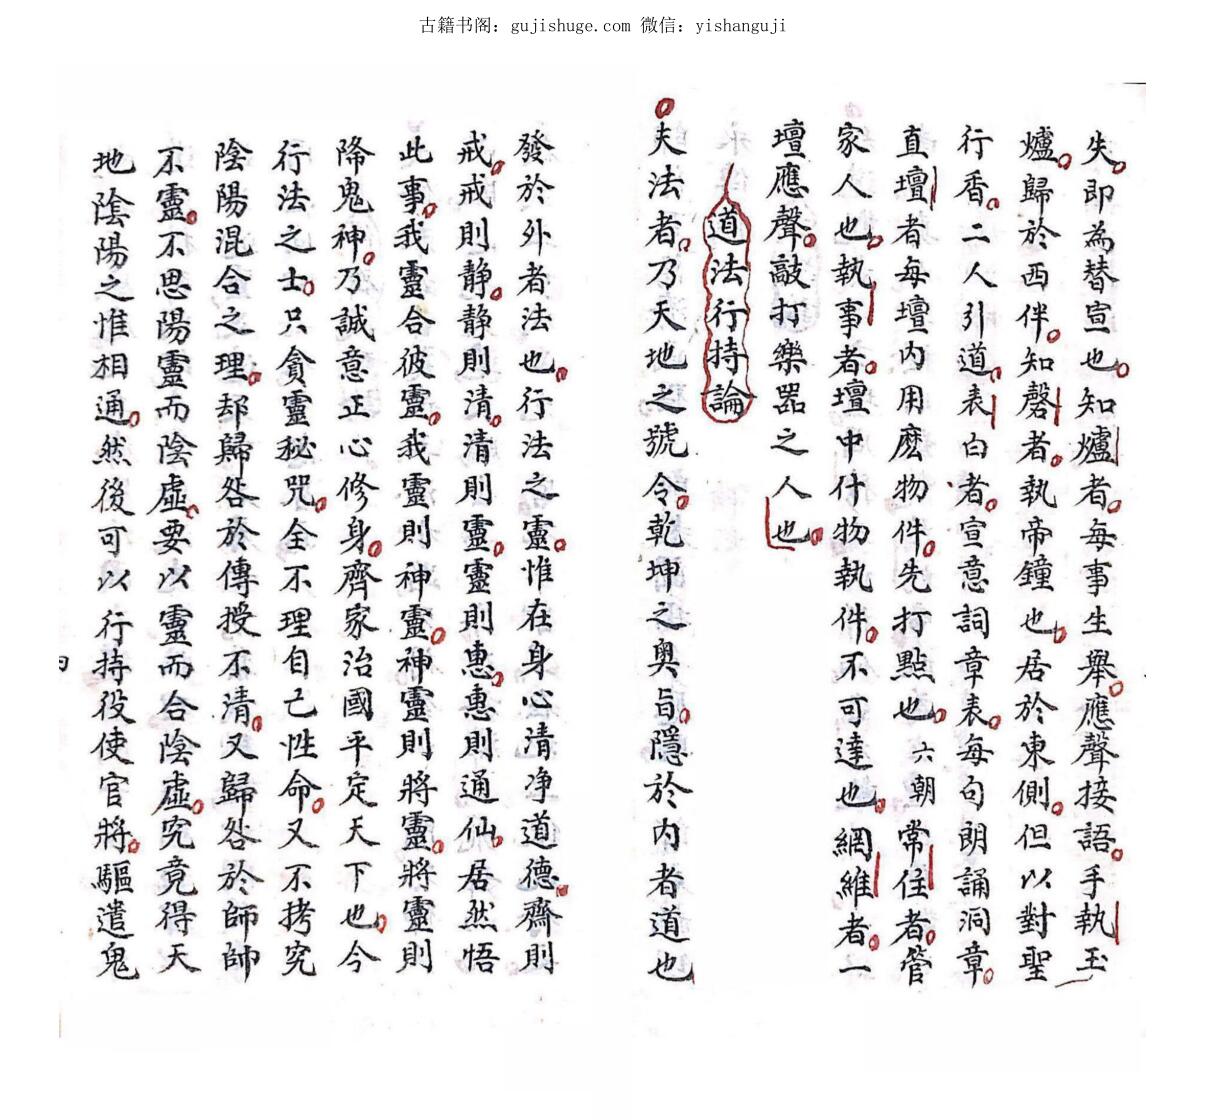 古籍书阁：gujishuge.com 微信：yishanguji
失。即為替宣也。知爐者。每事生舉。應聲接語。手執玉
爐。歸於西伴。知磬者。執帝鐘也。居於東側。但以對聖
行香。二人引道。表白者。宣意詞章表。每句朗誦洞章。
直壇者每壇內用麽物件。先打點也。六朝常住者。管
家人也。執事者。壇中什物執件。不可達也。網維者。一
壇應聲。敲打樂器之人也。
道法行持論
夫法者。乃天地之號令。乾坤之奧旨。隱於內者道也
發於外者法也。行法之靈。惟在身心清净道德。齋則
戒。戒則静。静則清。清則靈。靈則惠。惠則通仙。居然悟
此事。我靈合彼靈。我靈則神靈。神靈則將靈。將靈則
降鬼神。乃誠意正心修身。齊家治國平定天下也。今
行法之士。只貪靈秘咒。全不理自己性命。又不拷究
陰陽混合之理。却歸咎於傳授不清。又歸咎於師師
不靈。不思陽靈而陰虛。要以靈而合陰虛。究竟得天
地陰陽之惟相通。然後可以行持役使官將。驅遣鬼